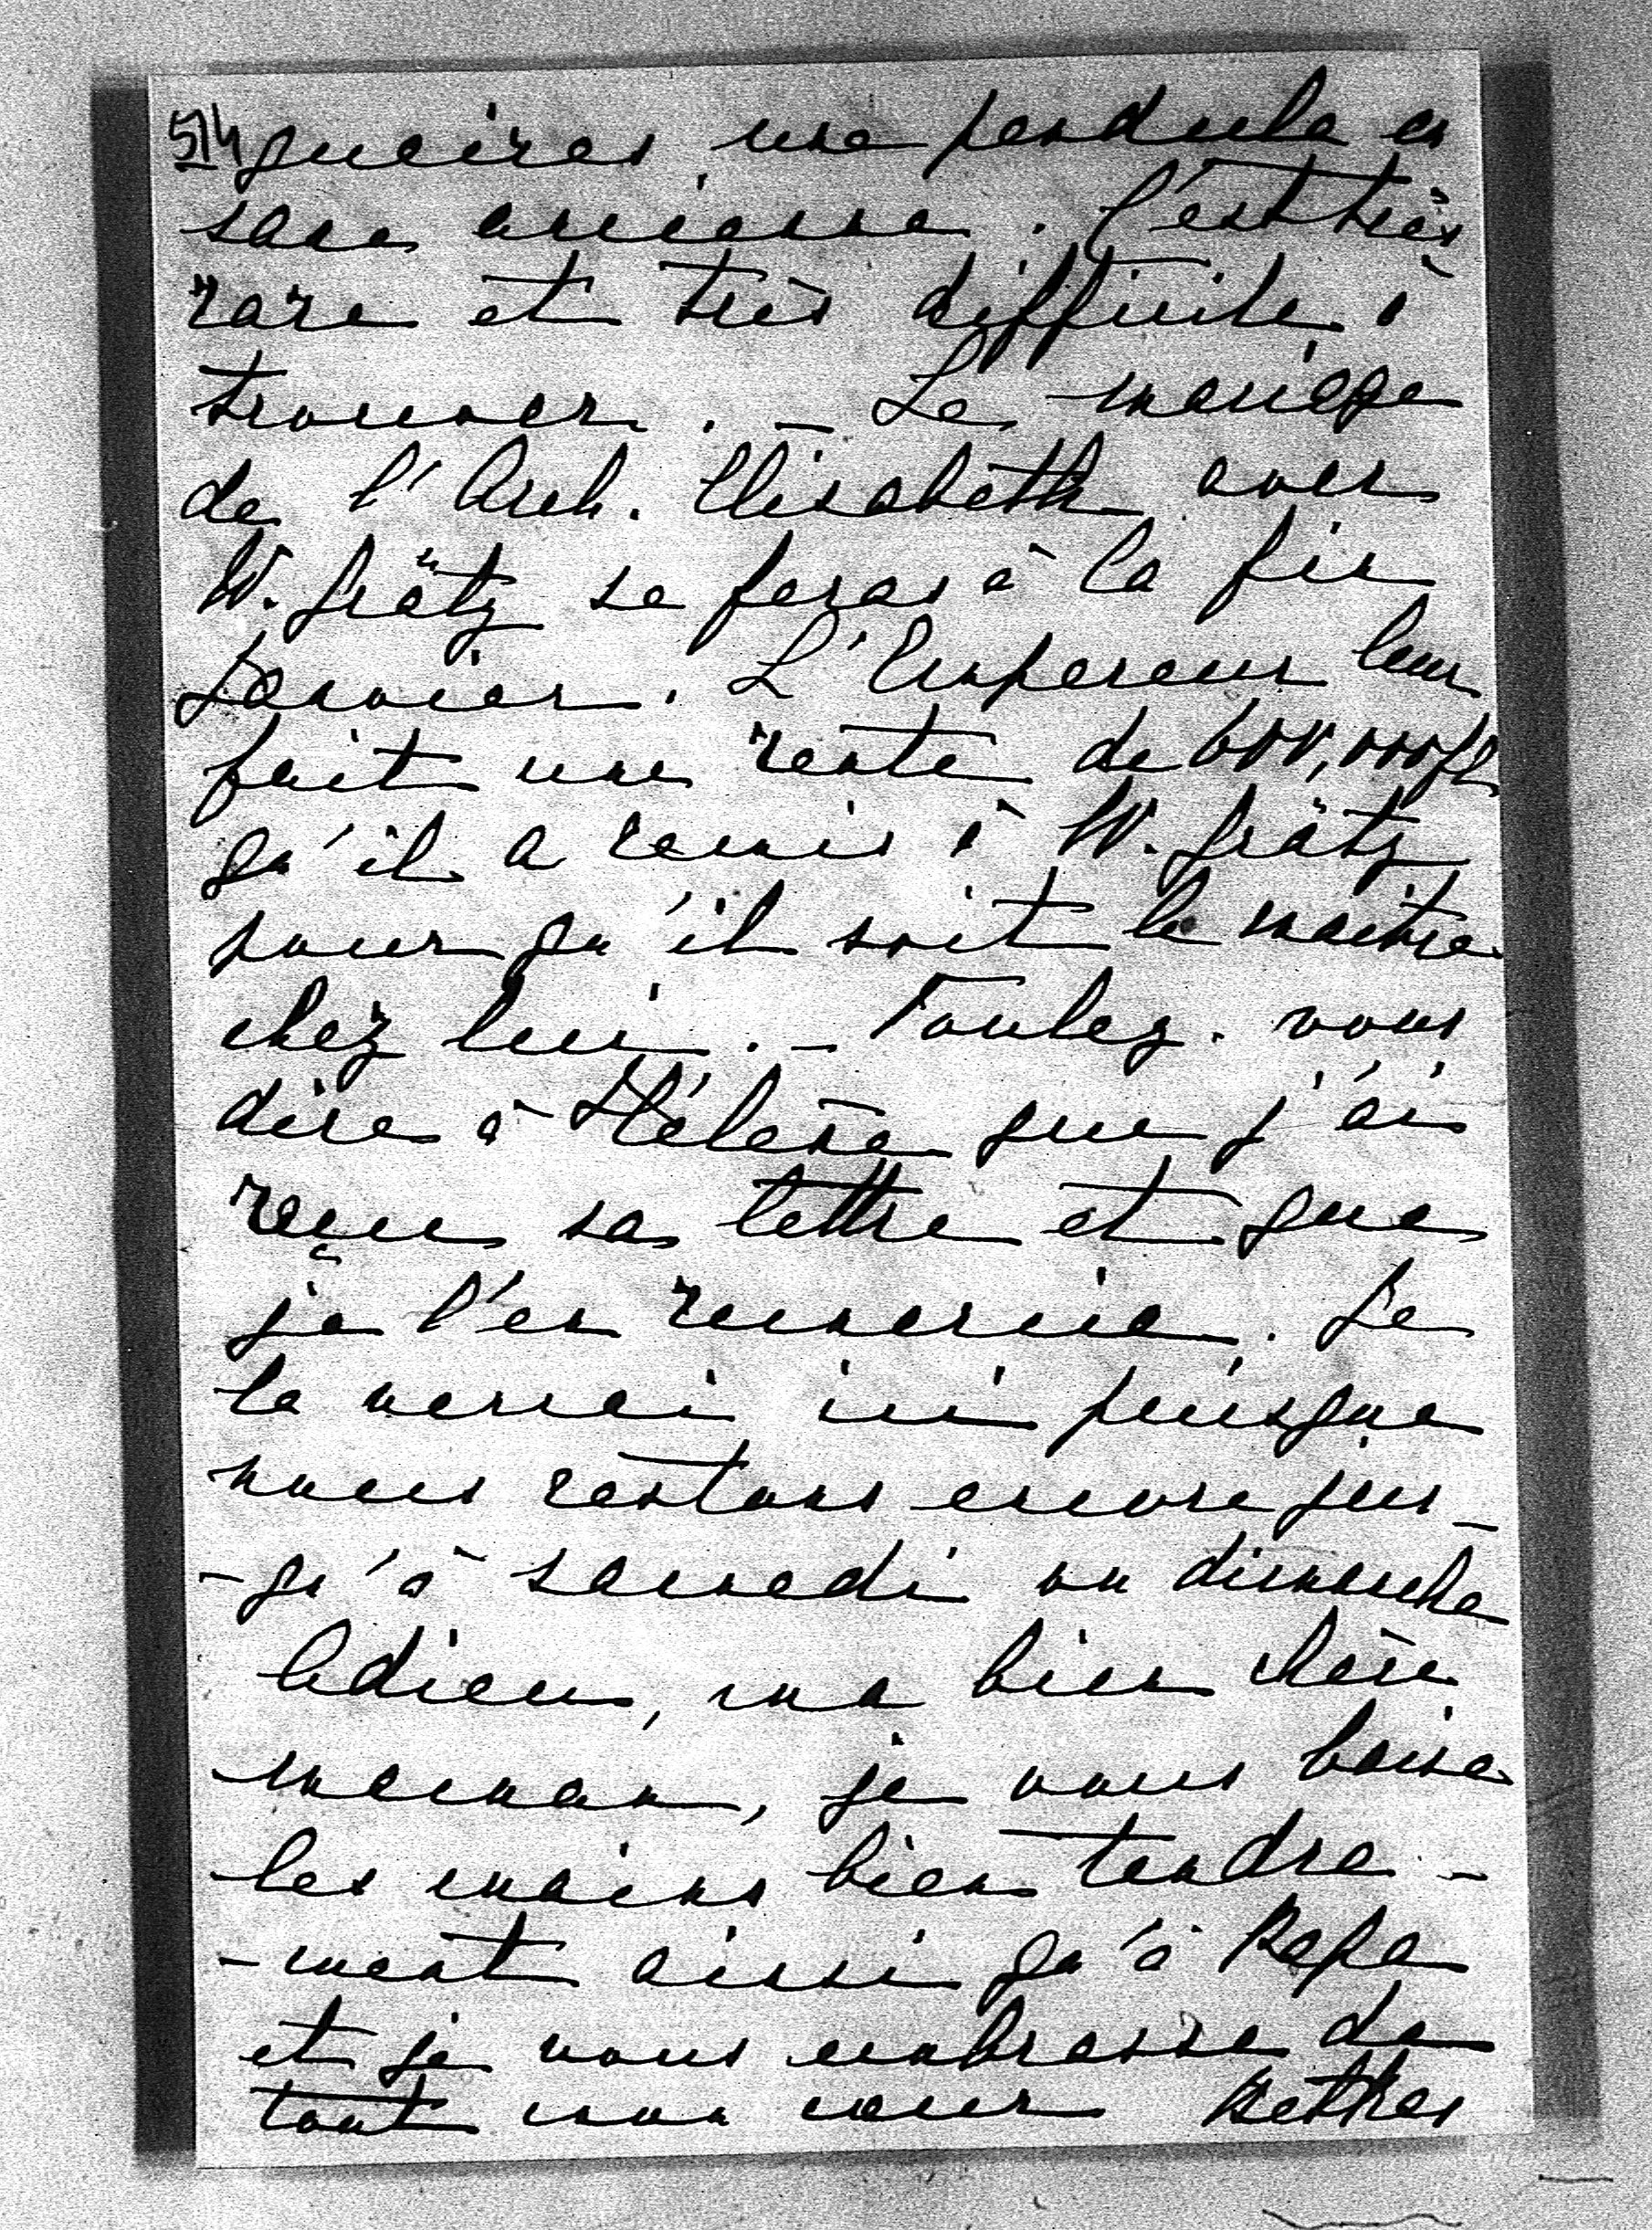 514 gueires, une pendule en
saxe ancienne. C'est très
rare et très difficile à
trouver. _ Le mariage
de l'Arch. Elisabeth avec
W. Grätz se feras à la fin
Janvier. L'Empereur leur
fait une rente de 600,000 fl
qu'il a remis à W. Grätz
pour qu'il soit le maître
chez lui. _ Voulez-vous
dire à Hélène que j'ai
reçu sa lettre et que
je l'en remercie. Je
la verrai ici puisque
nous restons encore jus-
-qu'à samedi ou dimanche
Adieu, ma bien chère
maman, je vous baise
les mains bien tendre-
-ment ainsi qu'à Papa
et je vous embrasse de
tout mon cœur